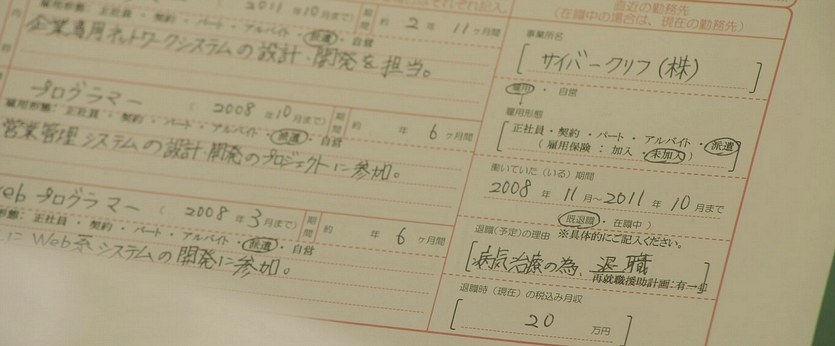 2011年10月まで) 期間 約 2年 11ヶ月間
雇用形態: 正社員・契約・パート・アルバイト・派遣・自営
企業専用ネットワークシステムの設計・開発を担当。
プログラマー ( 2008年10月まで) 期間 約 年 6ヶ月間
雇用形態: 正社員・契約・パート・アルバイト・派遣・自営
営業管理システムの設計・開発のプロジェクトに参加。
プログラマー ( 2008年3月まで) 期間 約 年 6ヶ月間
形態: 正社員・契約・パート・アルバイト・派遣・自営
にWeb系システムの開発に参加。
直近の勤務先
(在職中の場合は、現在の勤務先)
事業所名
サイバークリフ(株)
雇用・自営
雇用形態
正社員・契約・パート・アルバイト・派遣
(雇用保険: 加入・未加入)
働いていた(いる)期間
2008年 11月~2011年 10月まで
(既退職・在職中)
退職(予定)の理由 ※具体的にご記入ください。
病気治療の為、退職
再就職援助計画:有
退職時(現在)の税込み月収
20万円